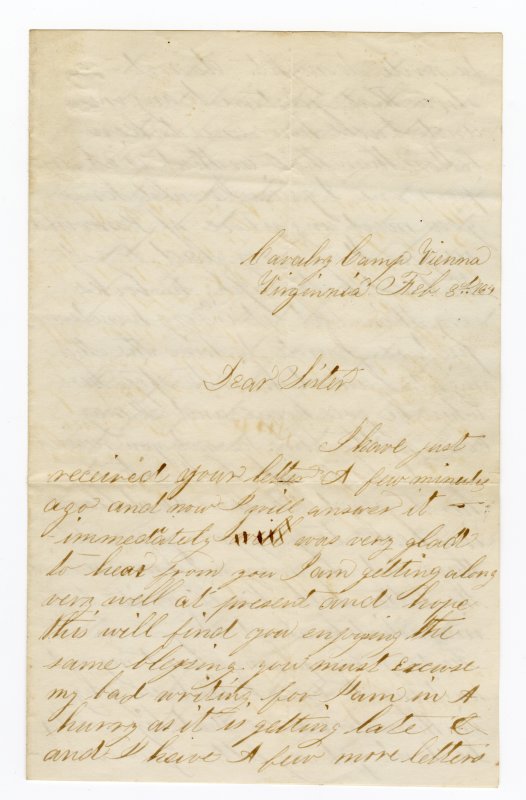 Cavalry Camp Vienna
Virginnia Feb 8th /64
Dear Sister
I have just
received your letter A few minutes
ago and now I will answer it -
immediately I was very glad
to hear from you I am getting along
very well at present and hope
this will find you enjoying the
same blessing. you must excuse
my bad writing for I am in A
hurry as it is getting late &
and I have A few more letters